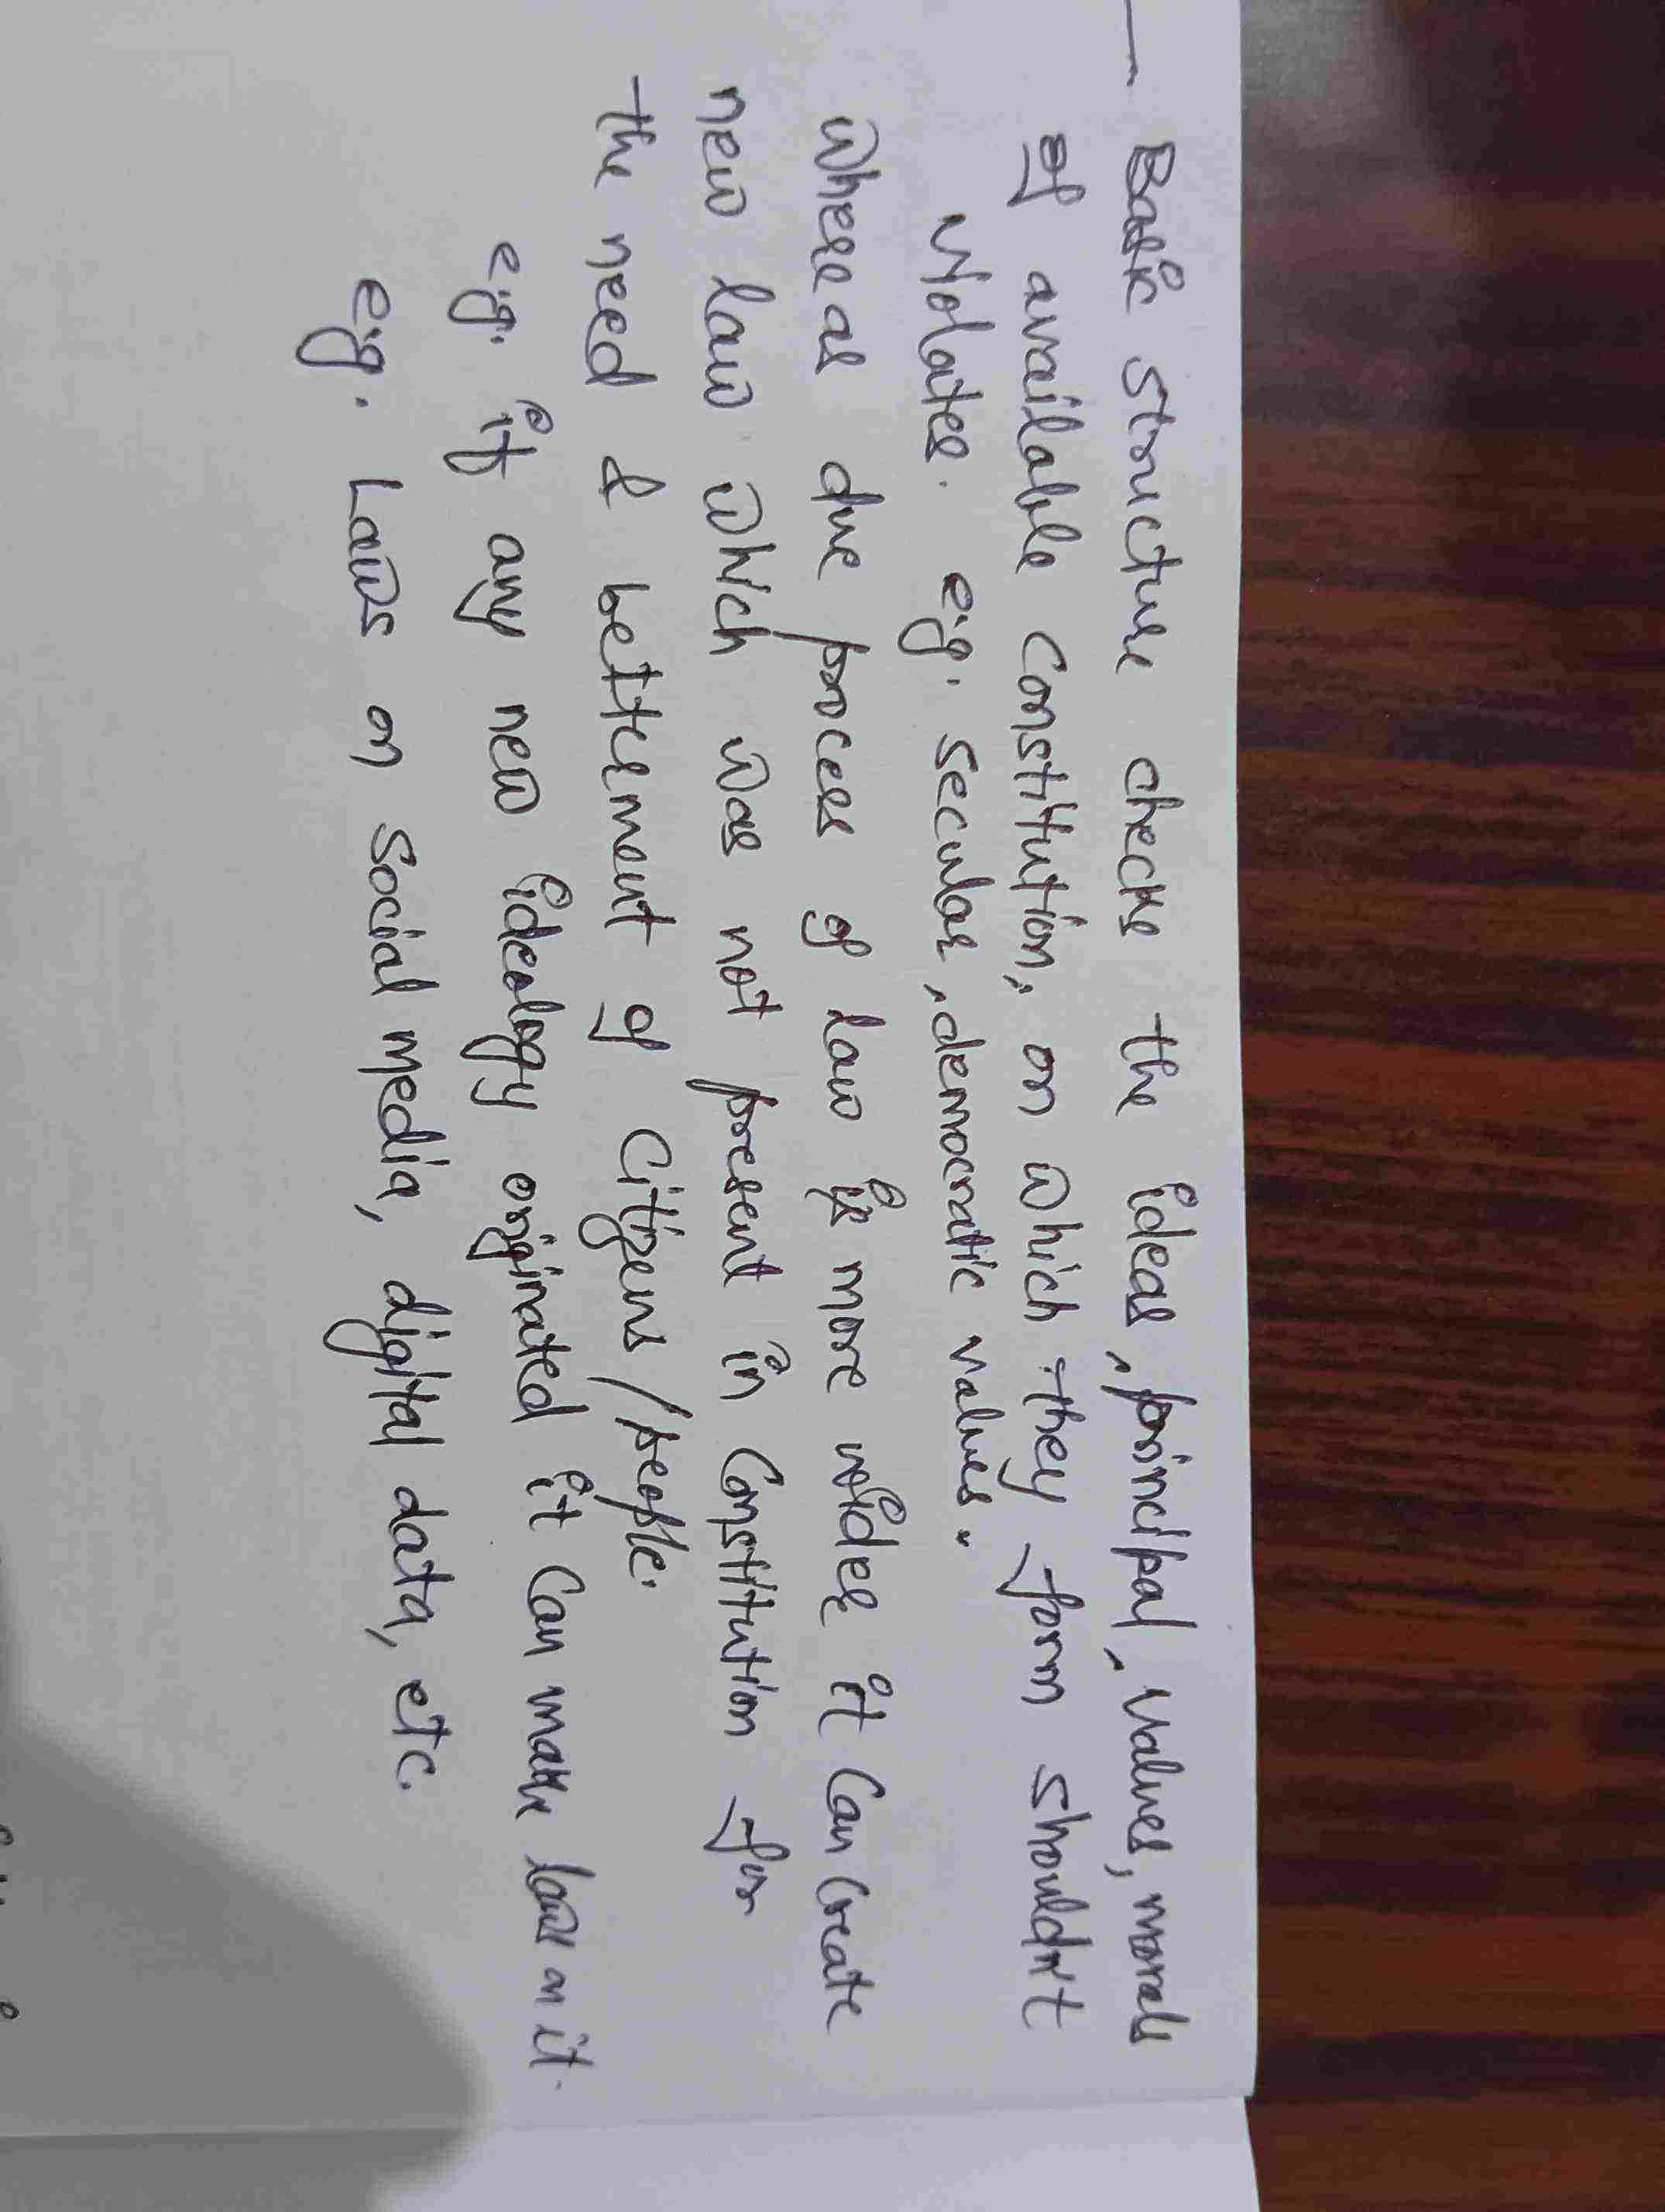 — Basic structure checks the ideas, principal, values, morals
of available constitution, on which they form shouldn't
violates. e.g. secular, democratic values.
Whereas due process of law is more wider it can create
new law which was not present in Constitution for
the need & betterment of Citizens / people.
e.g. if any new ideology originated it can make laws on it.
e.g. Laws on social media, digital data, etc.